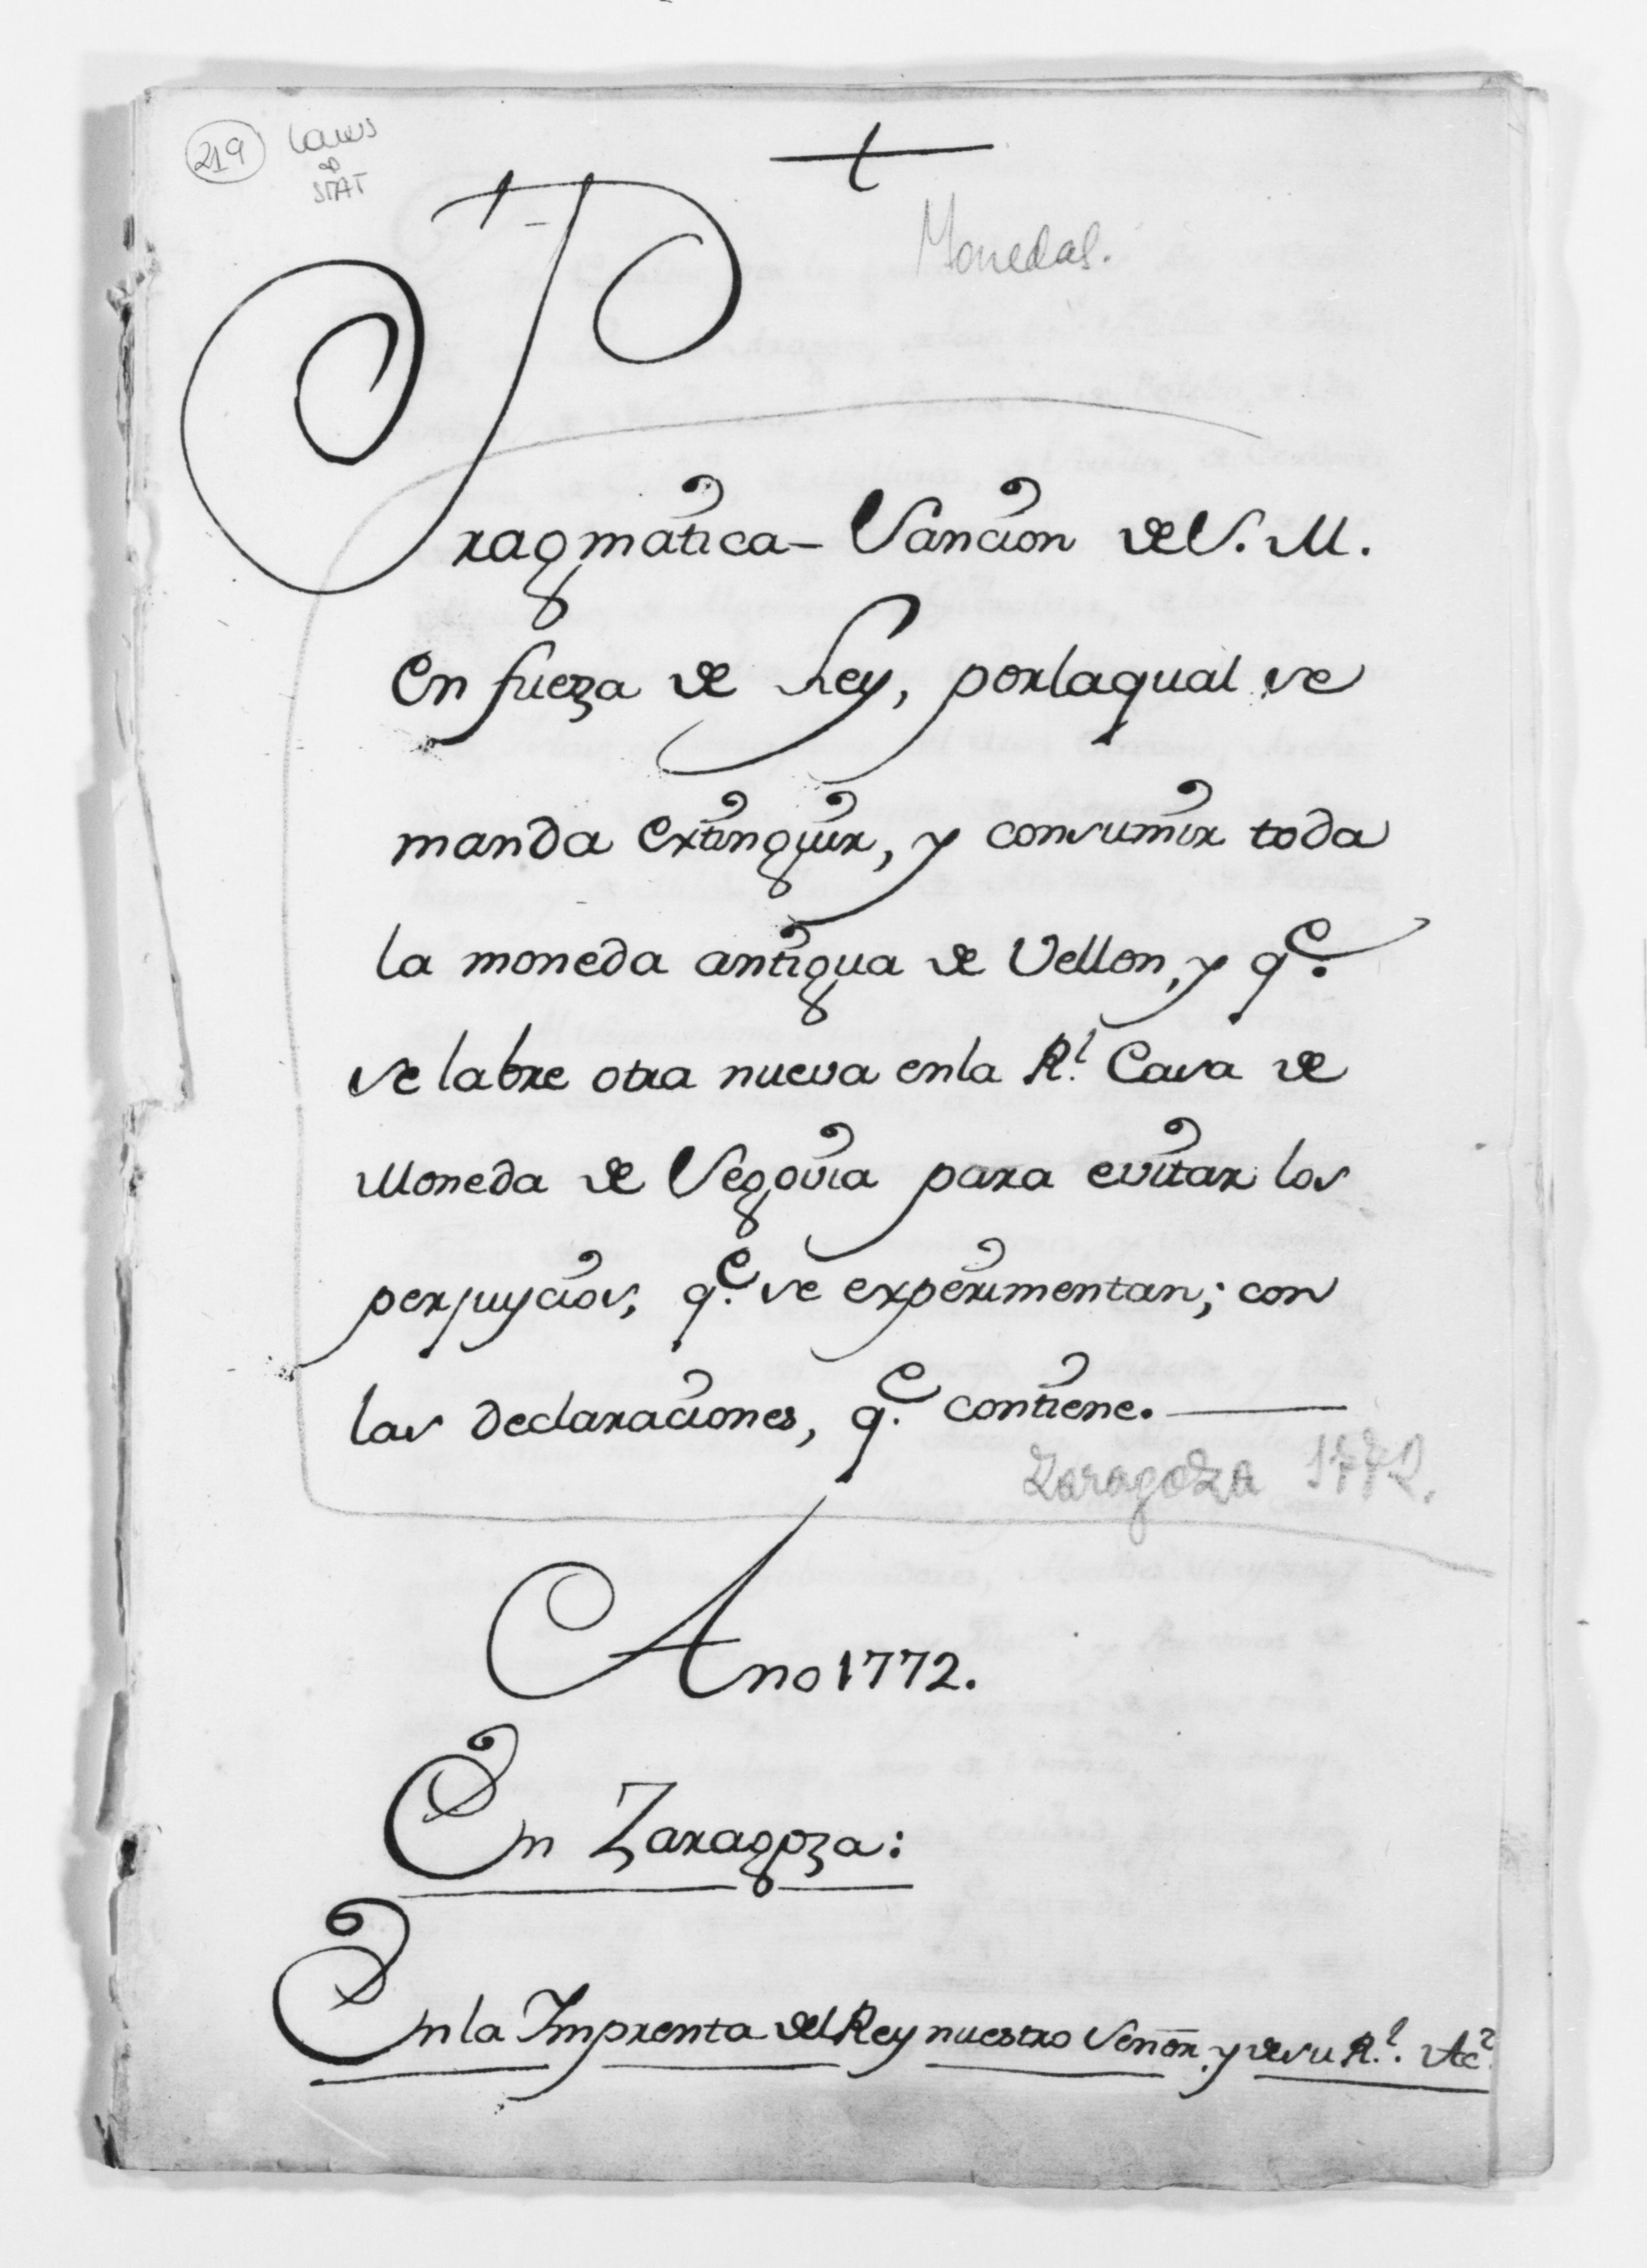 219
Laws
STAT
Monedas.
Pragmática-Sancion de S. M.
en fuerza de Ley, por la qual se
manda extinguir, y consumir toda
la moneda antigua de Vellon, y q.e
se labre otra nueva en la R.l Casa de
Moneda de Segovia para evitar los
perjuycios, q.e se experimentan; con
las declaraciones, q.e contiene.
Zaragoza 1772.
Ano 1772.
En Zaragoza:
En la Imprenta del Rey nuestro Señor, y de su R.l